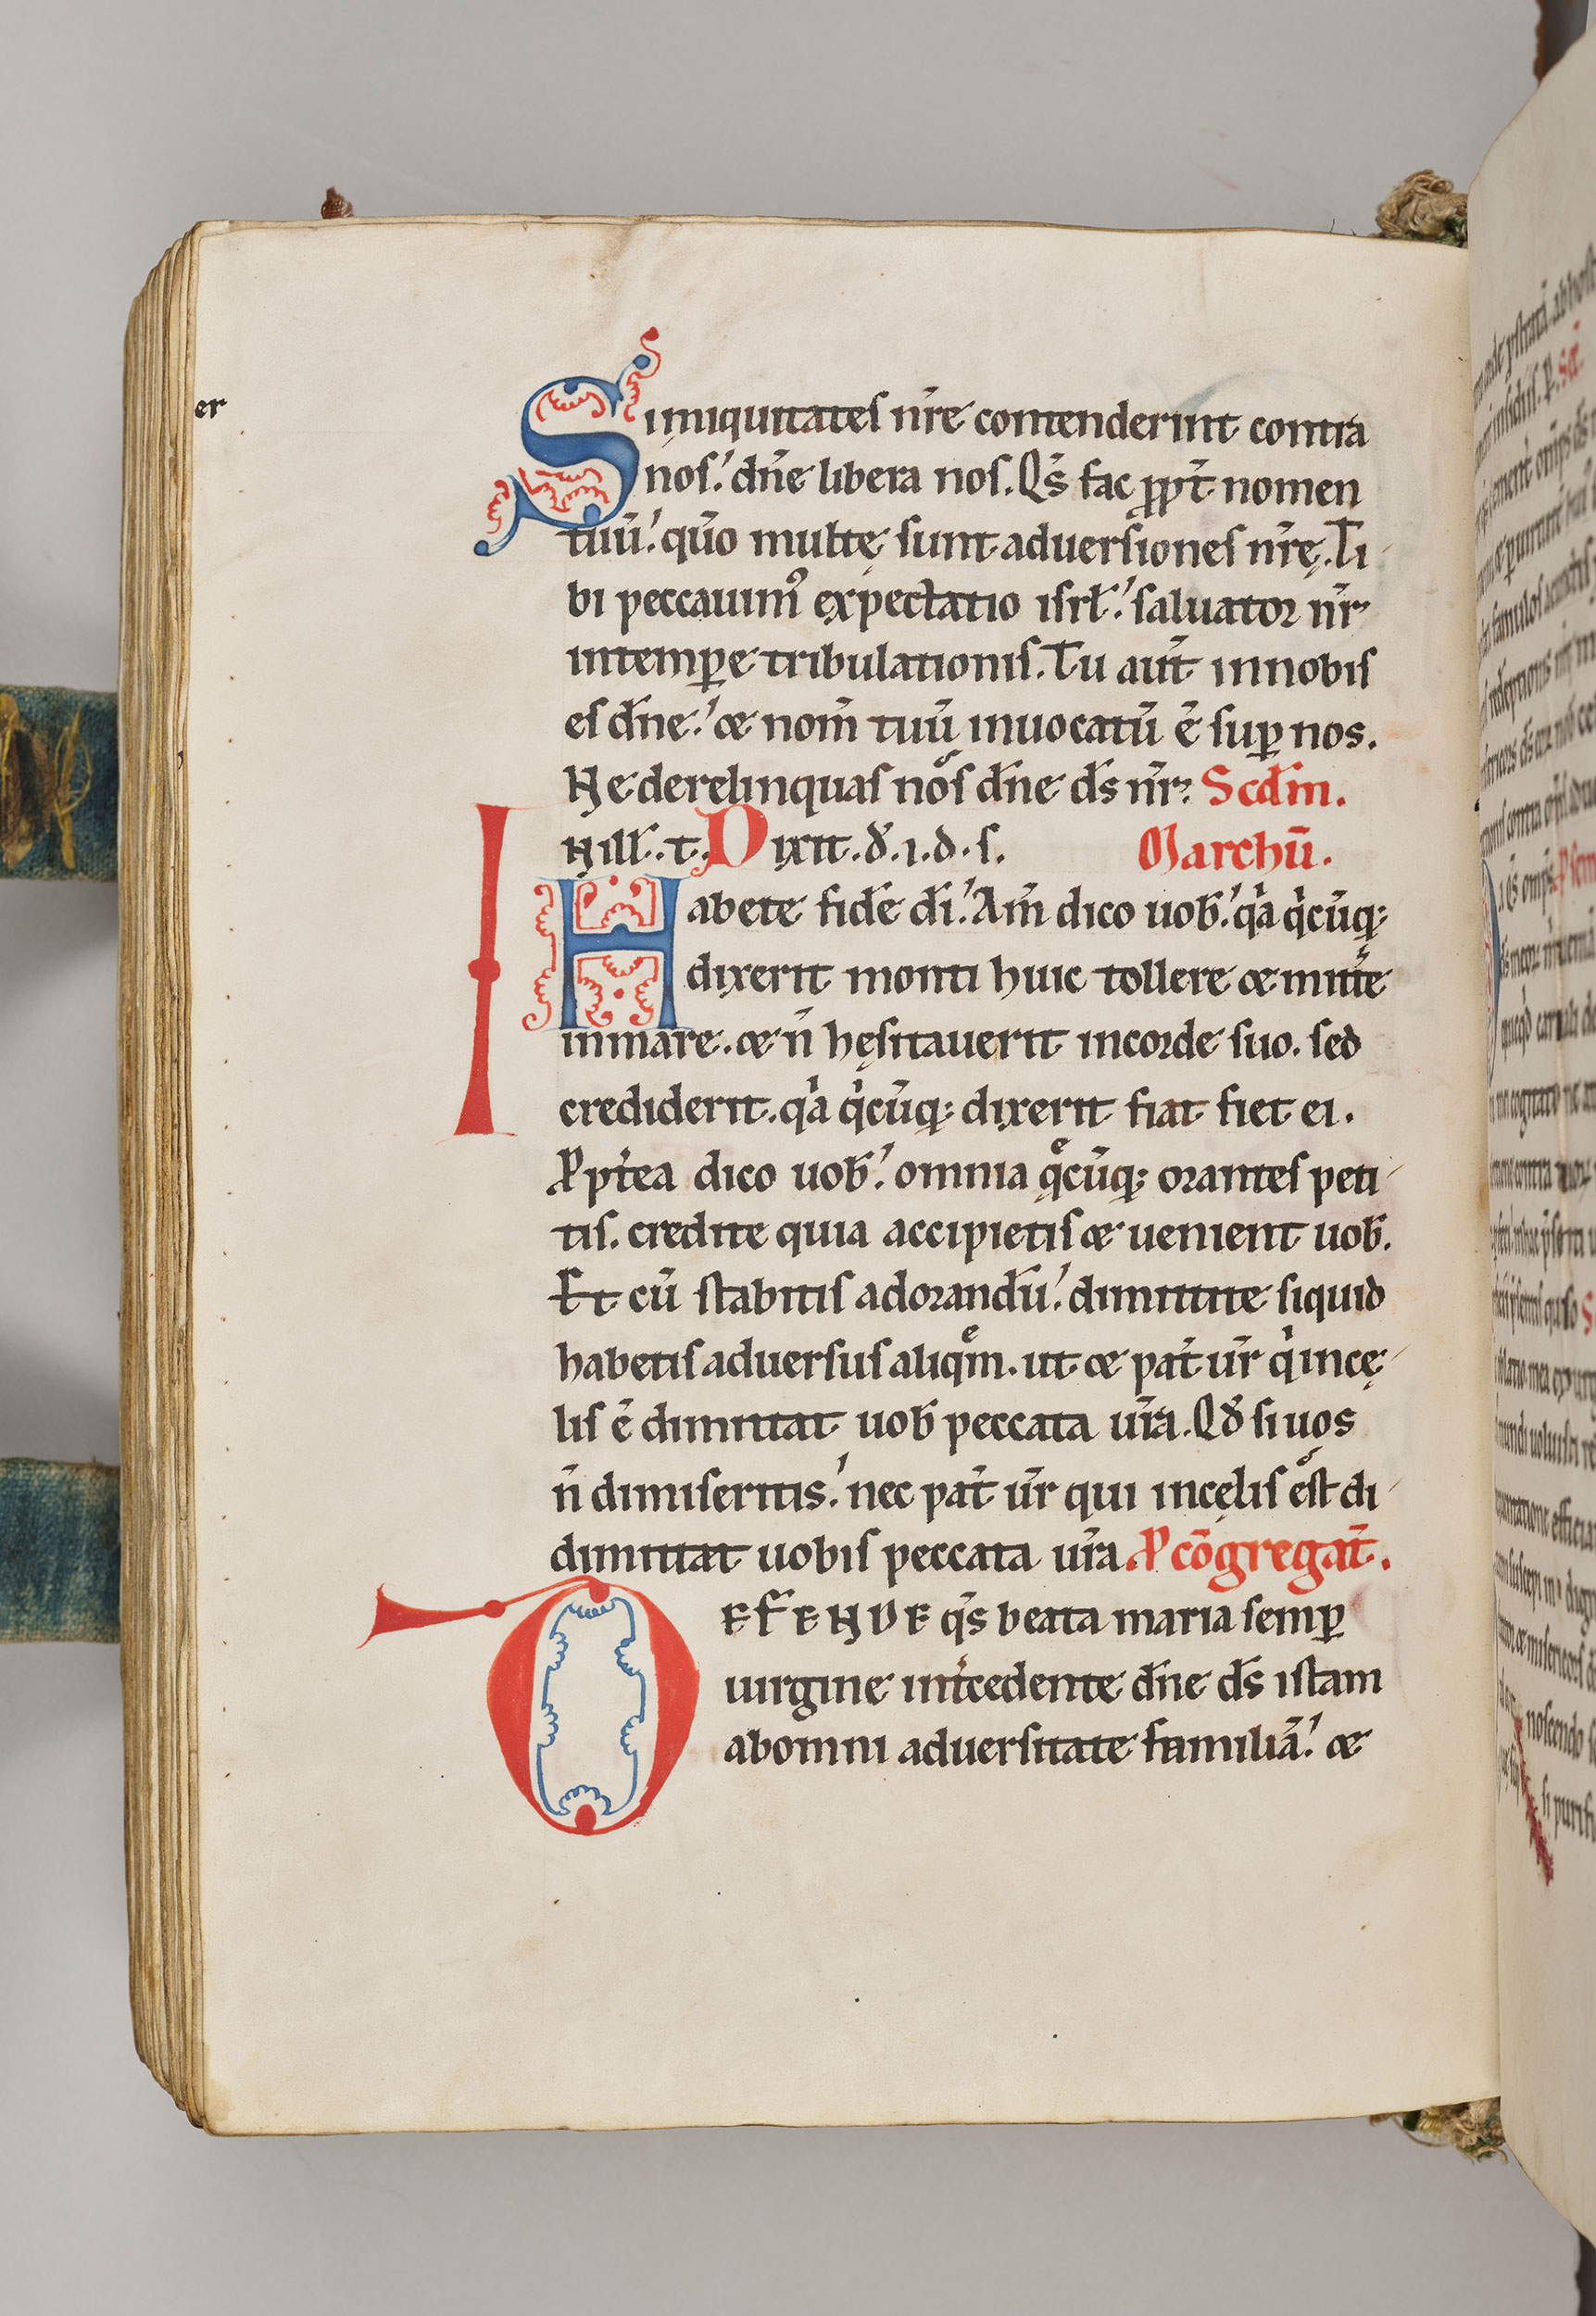 er
Si iniquitateſ nr̄e contenderint contra
noſ. dn̄e libera noſ. Qs̄ fac ꝓpt̄ nomen
tuū. qūo multę ſunt aduerſioneſ nr̄ę. Ti
bi peccauimꝰ expectatio iſrl̄. ſaluator nr̄
intemꝑe tribulationiſ. Tu aut̄ innobiſ
eſ dn̄e. & nom̄ tuū inuocatū ē ſuꝑ nos.
Ne derelinquaſ noſ dn̄e ds̄ nr̄. Scd̄m.
I Nill̄. t. Dixit. d̄. i. d. ſ. Marchū.
Habete fidē dī. Am̄ dico uob̄. qͥa qͥcūq;
dixerit monti huic tollere & mitte
inmare. & n̄ hęſitauerit incorde ſuo. ſed
crediderit. qͥa qͥcūq; dixerit fiat fiet ei.
Ꝓpt̄ea dico uob̄. omnia qͤcūq; oranteſ peti
tiſ. credite quia accipietiſ & uenient uob̄.
Et cū ſtabitiſ adorandū. dimittite ſiquid
habetiſ aduerſuſ aliqͤm. ut & pat̄ ur̄ qͥ incę
liſ ē dimittat uob̄ peccata ur̄a. Qd̄ ſi uos
n̄ dimiſeritis. nec pat̄ ur̄ qui incęliſ eſt di
dimittat uobiſ peccata ur̄a. Ꝓ cōgregat̄.
DEFENDE qs̄ beata maria ſemꝑ
uirgine int̄cedente dn̄e ds̄ iſtam
abomni aduerſitate familiā. &